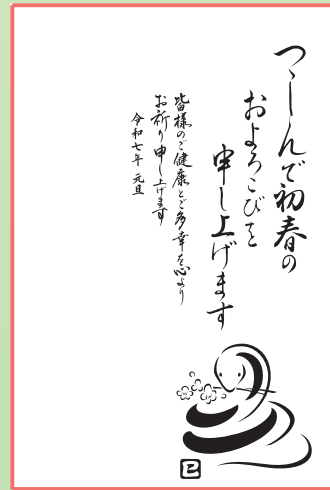 つゝしんで初春の
およろこびを
申し上げます
皆様のご健康とご多幸を心より
お祈り申し上げます
令和七年 元旦
巳